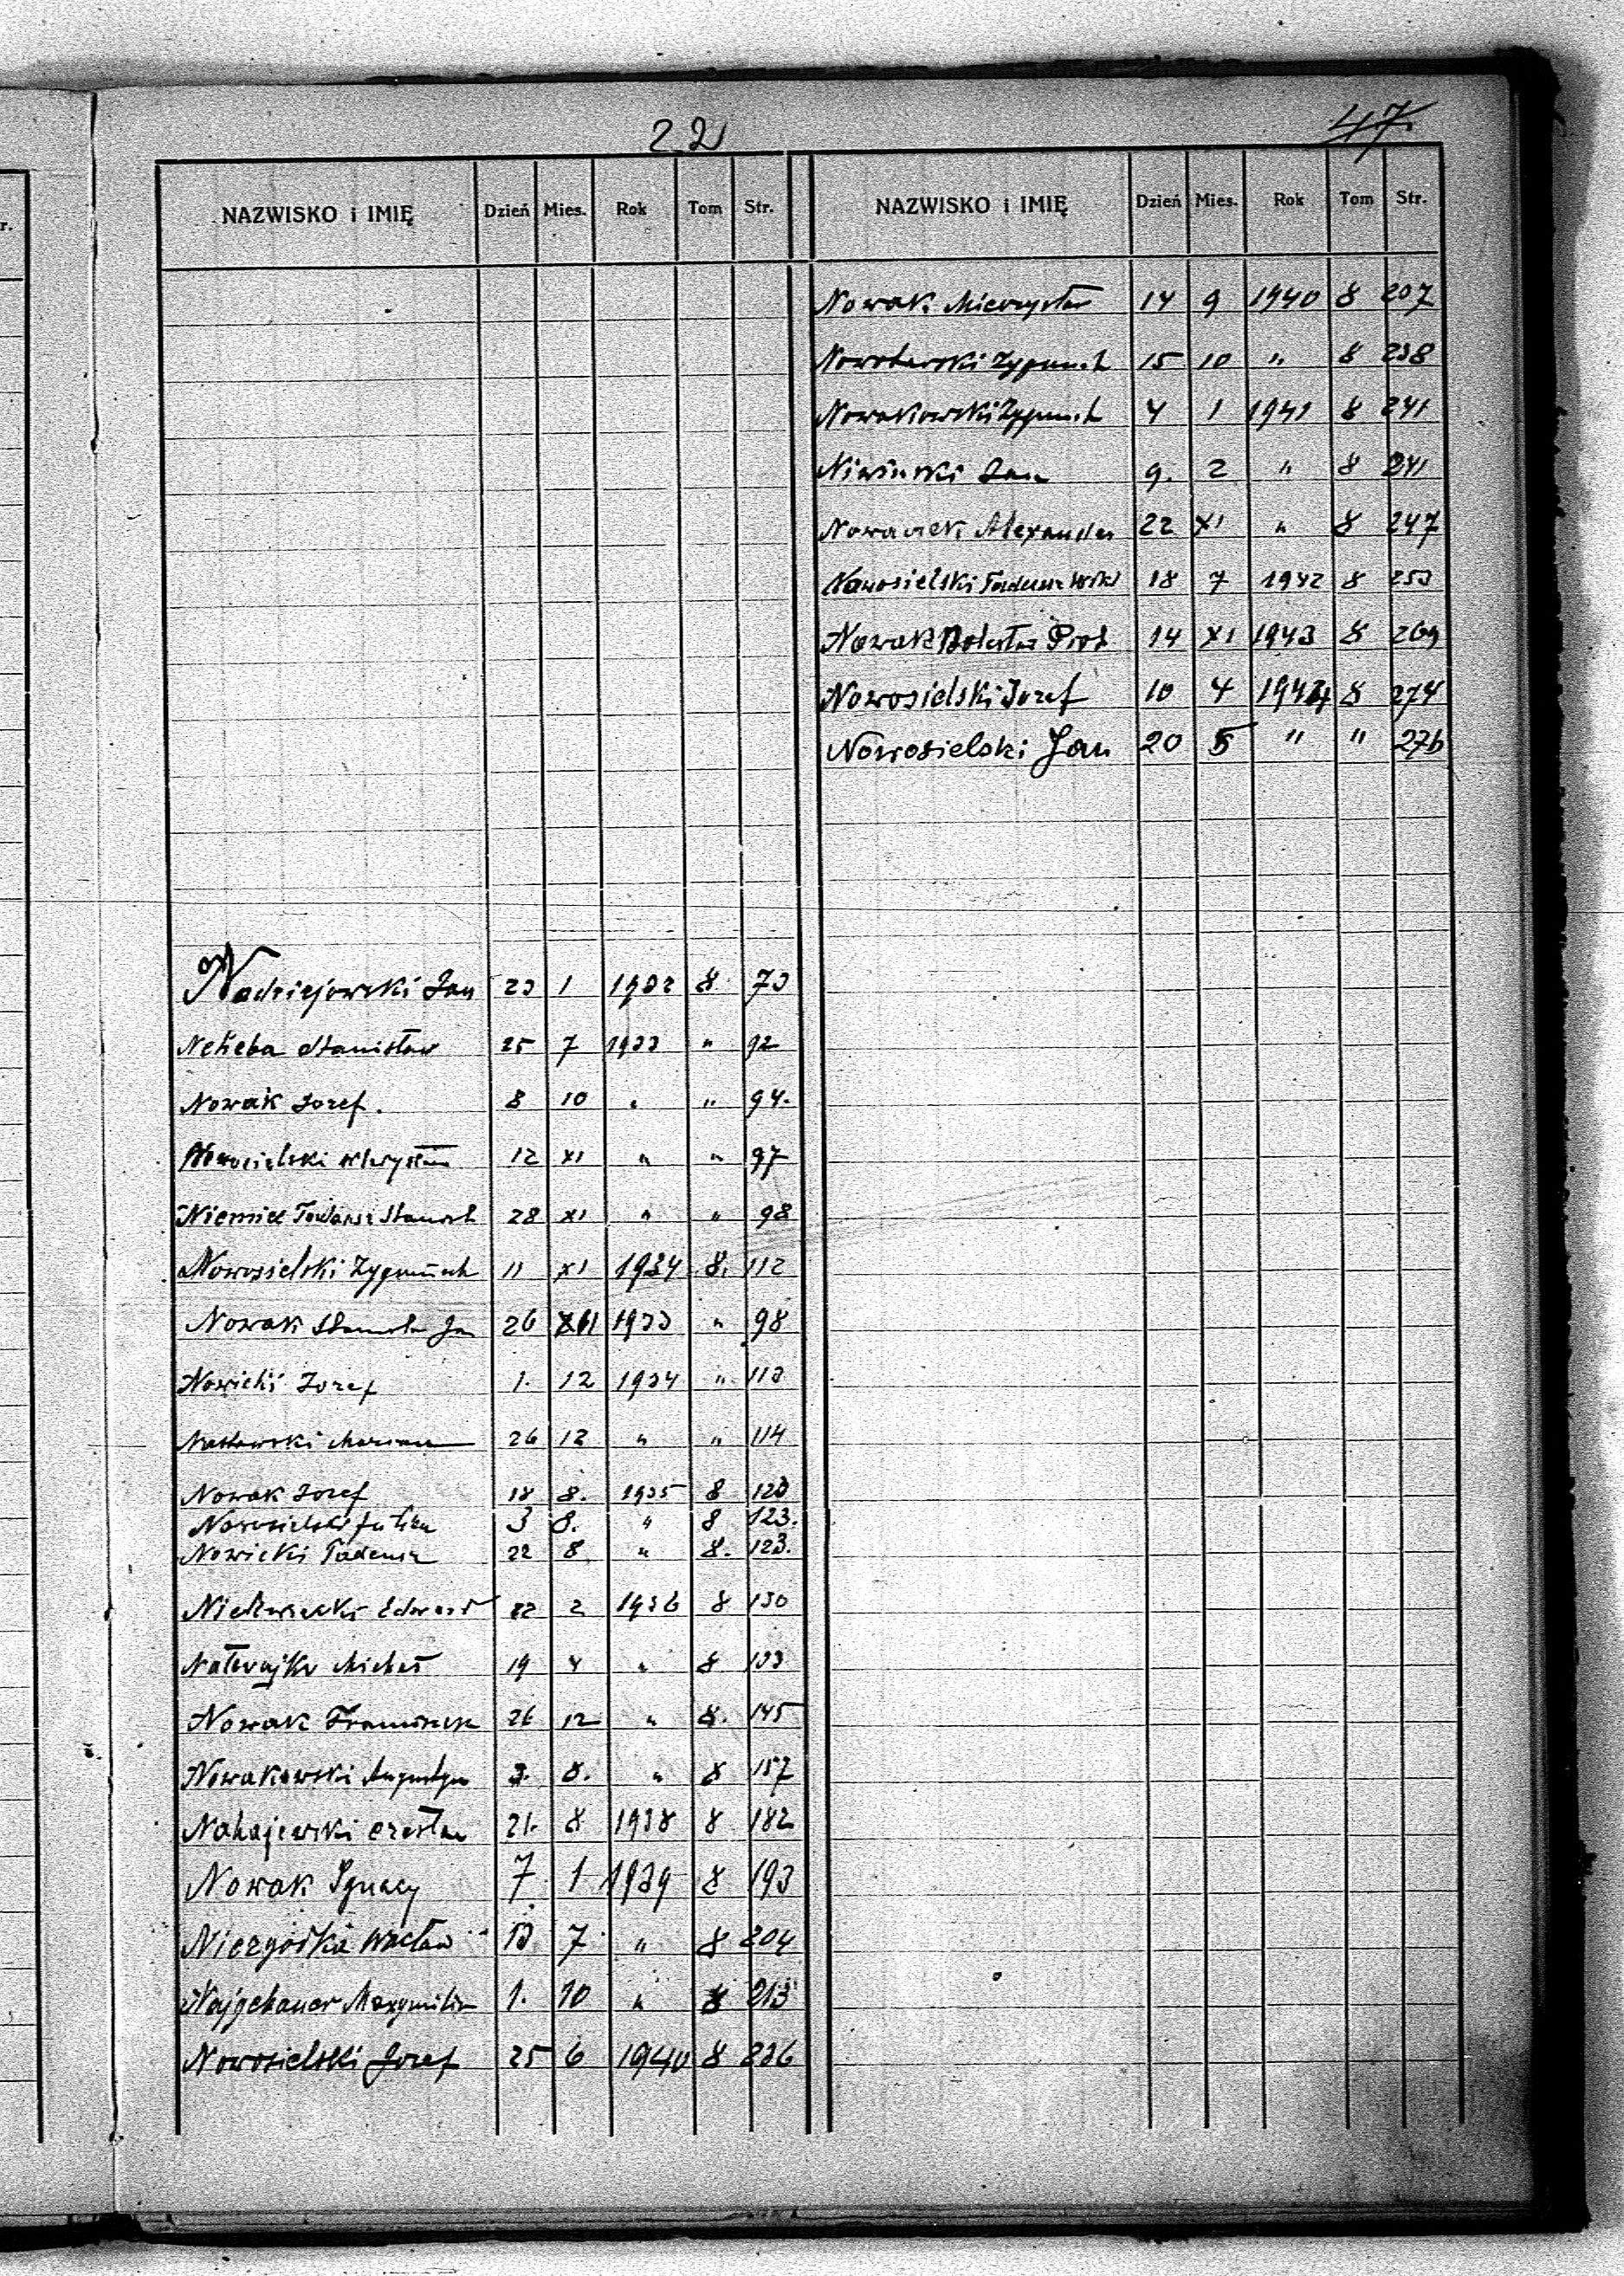 22
47
NAZWISKO i IMIĘ Dzień Mies. Rok Tom Str.
Nadziejowski Jan 23 1 1932 8 73
Stanisław 25 7 1933 " 92
Nowak Jozef. 8 10 " " 94.
Nowosielski 12 XI " " 97
Niemiec 28 XI " " 98
Nowosielski Zygmunt 11 XI 1934 8. 112
Nowak Jan 26 XII 1933 " 98
Nowicki Jozef 1. 12 1934 " 113
Marian 26 12 " " 114
Nowak Jozef 18 8. 1935 8 123
Nowosielski Julian 3 8. " 8 123.
Nowicki Tadeusz 22 8 " 8. 123.
Edward 22 2 1936 8 130
Michał 19 4 " 8 133
Nowak Franciszek 26 12 " 8. 145
Nowakowski Augustyn 3. 8. " 8 157
Nahajewski Czesław 21. 8 1938 8 182
Nowak Ignacy 7 1 1939 8 193
Niezgódka Wacław 13 7 " 8 204
Najgebauer Maxymilian 1. 10 " 8 213
Nowosielski Jozef 25 6 1940 8 236
NAZWISKO i IMIĘ Dzień Mies. Rok Tom Str.
Nowak Mieczysław 14 9 1940 8 207
Zygmunt 15 10 " 8 238
Nowakowski Zygmunt 4 1 1941 8 241
Niwinski Jan 9. 2 " 8 241
Nowaczek Alexander 22 XI " 8 247
Nowosielski Tadeusz 18 7 1942 8 253
Nowak Bolesław Piotr 14 XI 1943 8 269
Nowosielski Jozef 10 4 1944 8 274
Nowosielski Jan 20 5 " " 276